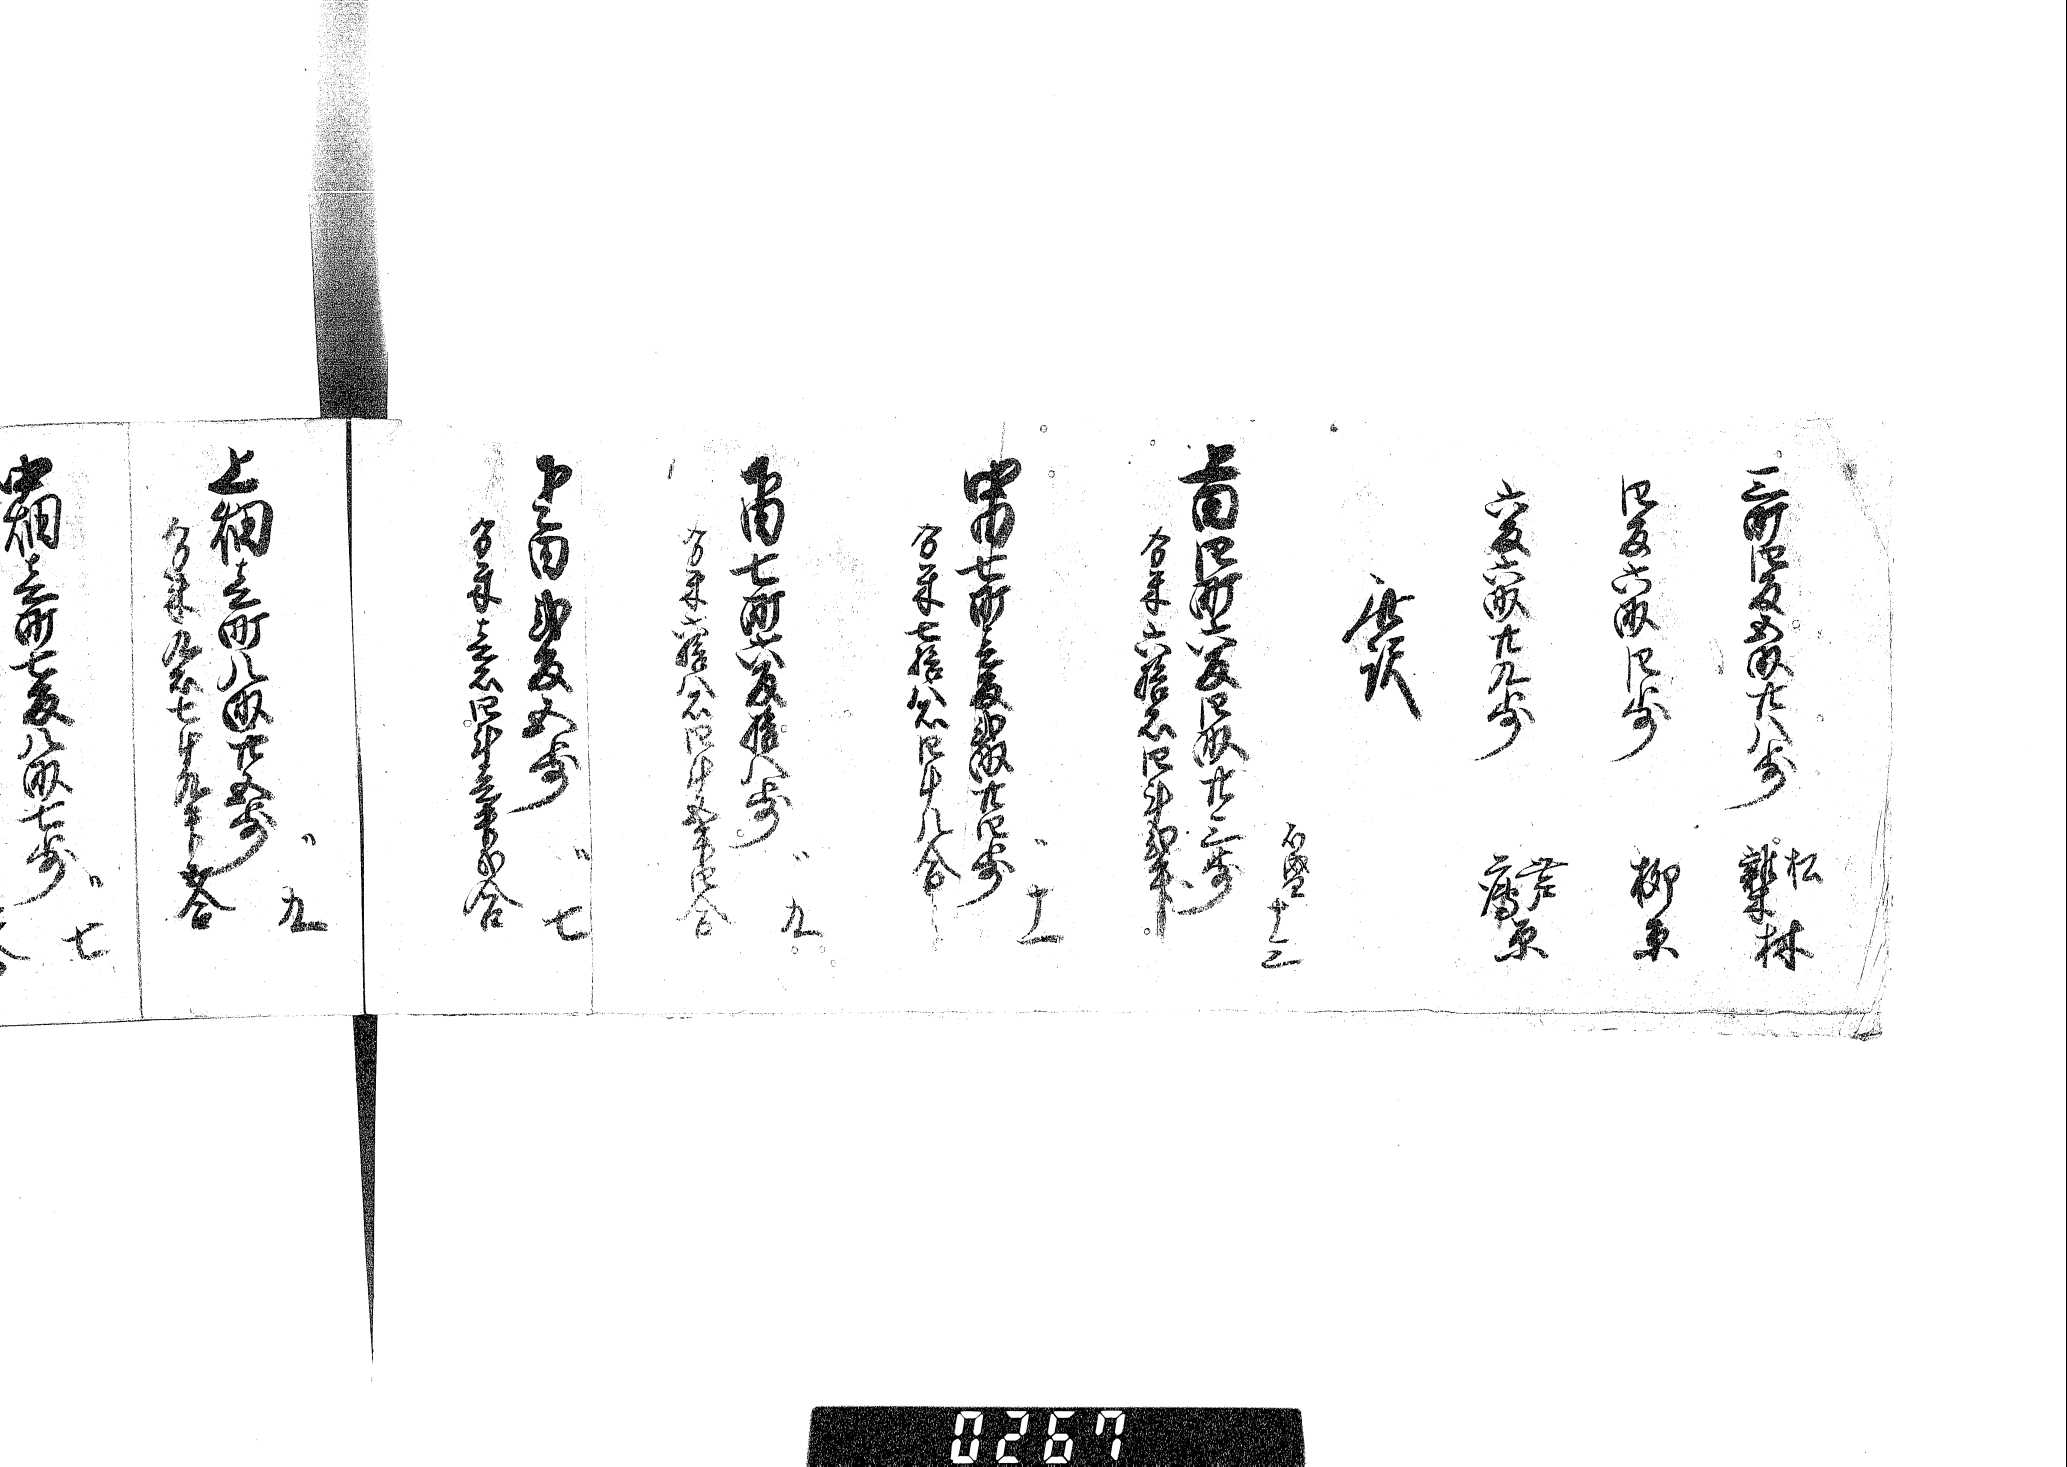 三町四反五畝廿八歩 松雑木林
四反六畝四歩 柳原
六反六畝廿九歩 芦原
此訳
石盛十三
上田四町六反四畝廿三歩
分米六拾石四斗弐升
〃十一
中田七町壱反弐畝廿四歩
分米七拾八石四斗八合
〃九
下田七町六反拾八歩
分米六拾八石四斗五升四合
〃七
下々田弐反五歩
分米壱石四斗壱升弐合
〃九
上畑壱町八畝廿五歩
分米九石七斗九升五合
〃七
中畑壱町七反八畝七歩
0267